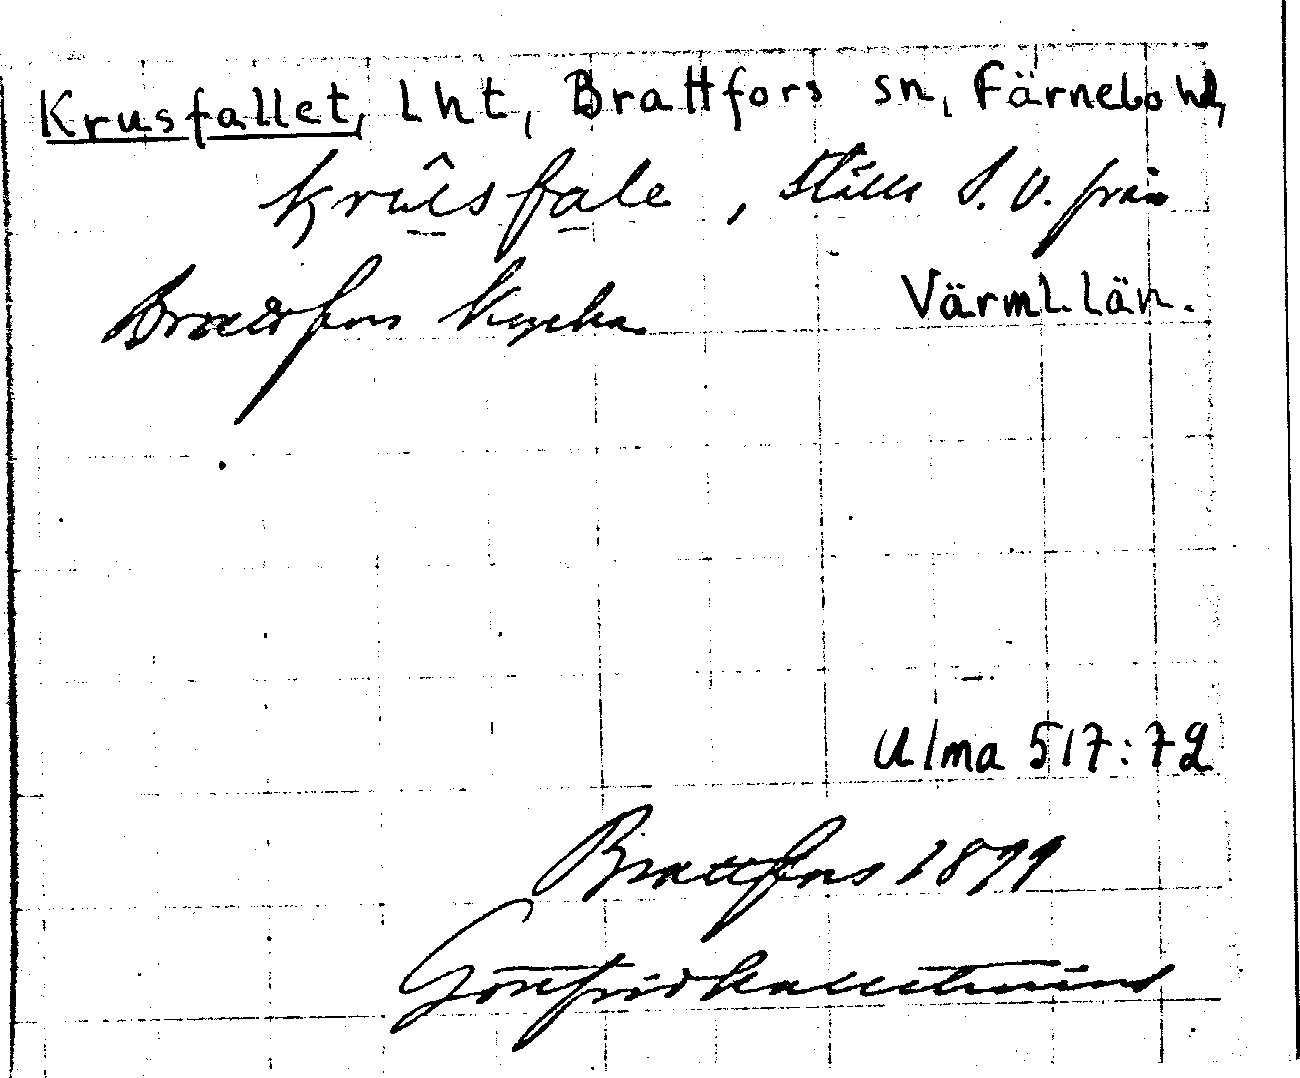 Krusfallet, lht, Brattfors sn, Färnebo hd,
krûsfale, ställe S. V. från
Brattfors kyrka
Värml. län.
Ulma 517:72
Brattfors 1899
Gottfrid Kallstenius